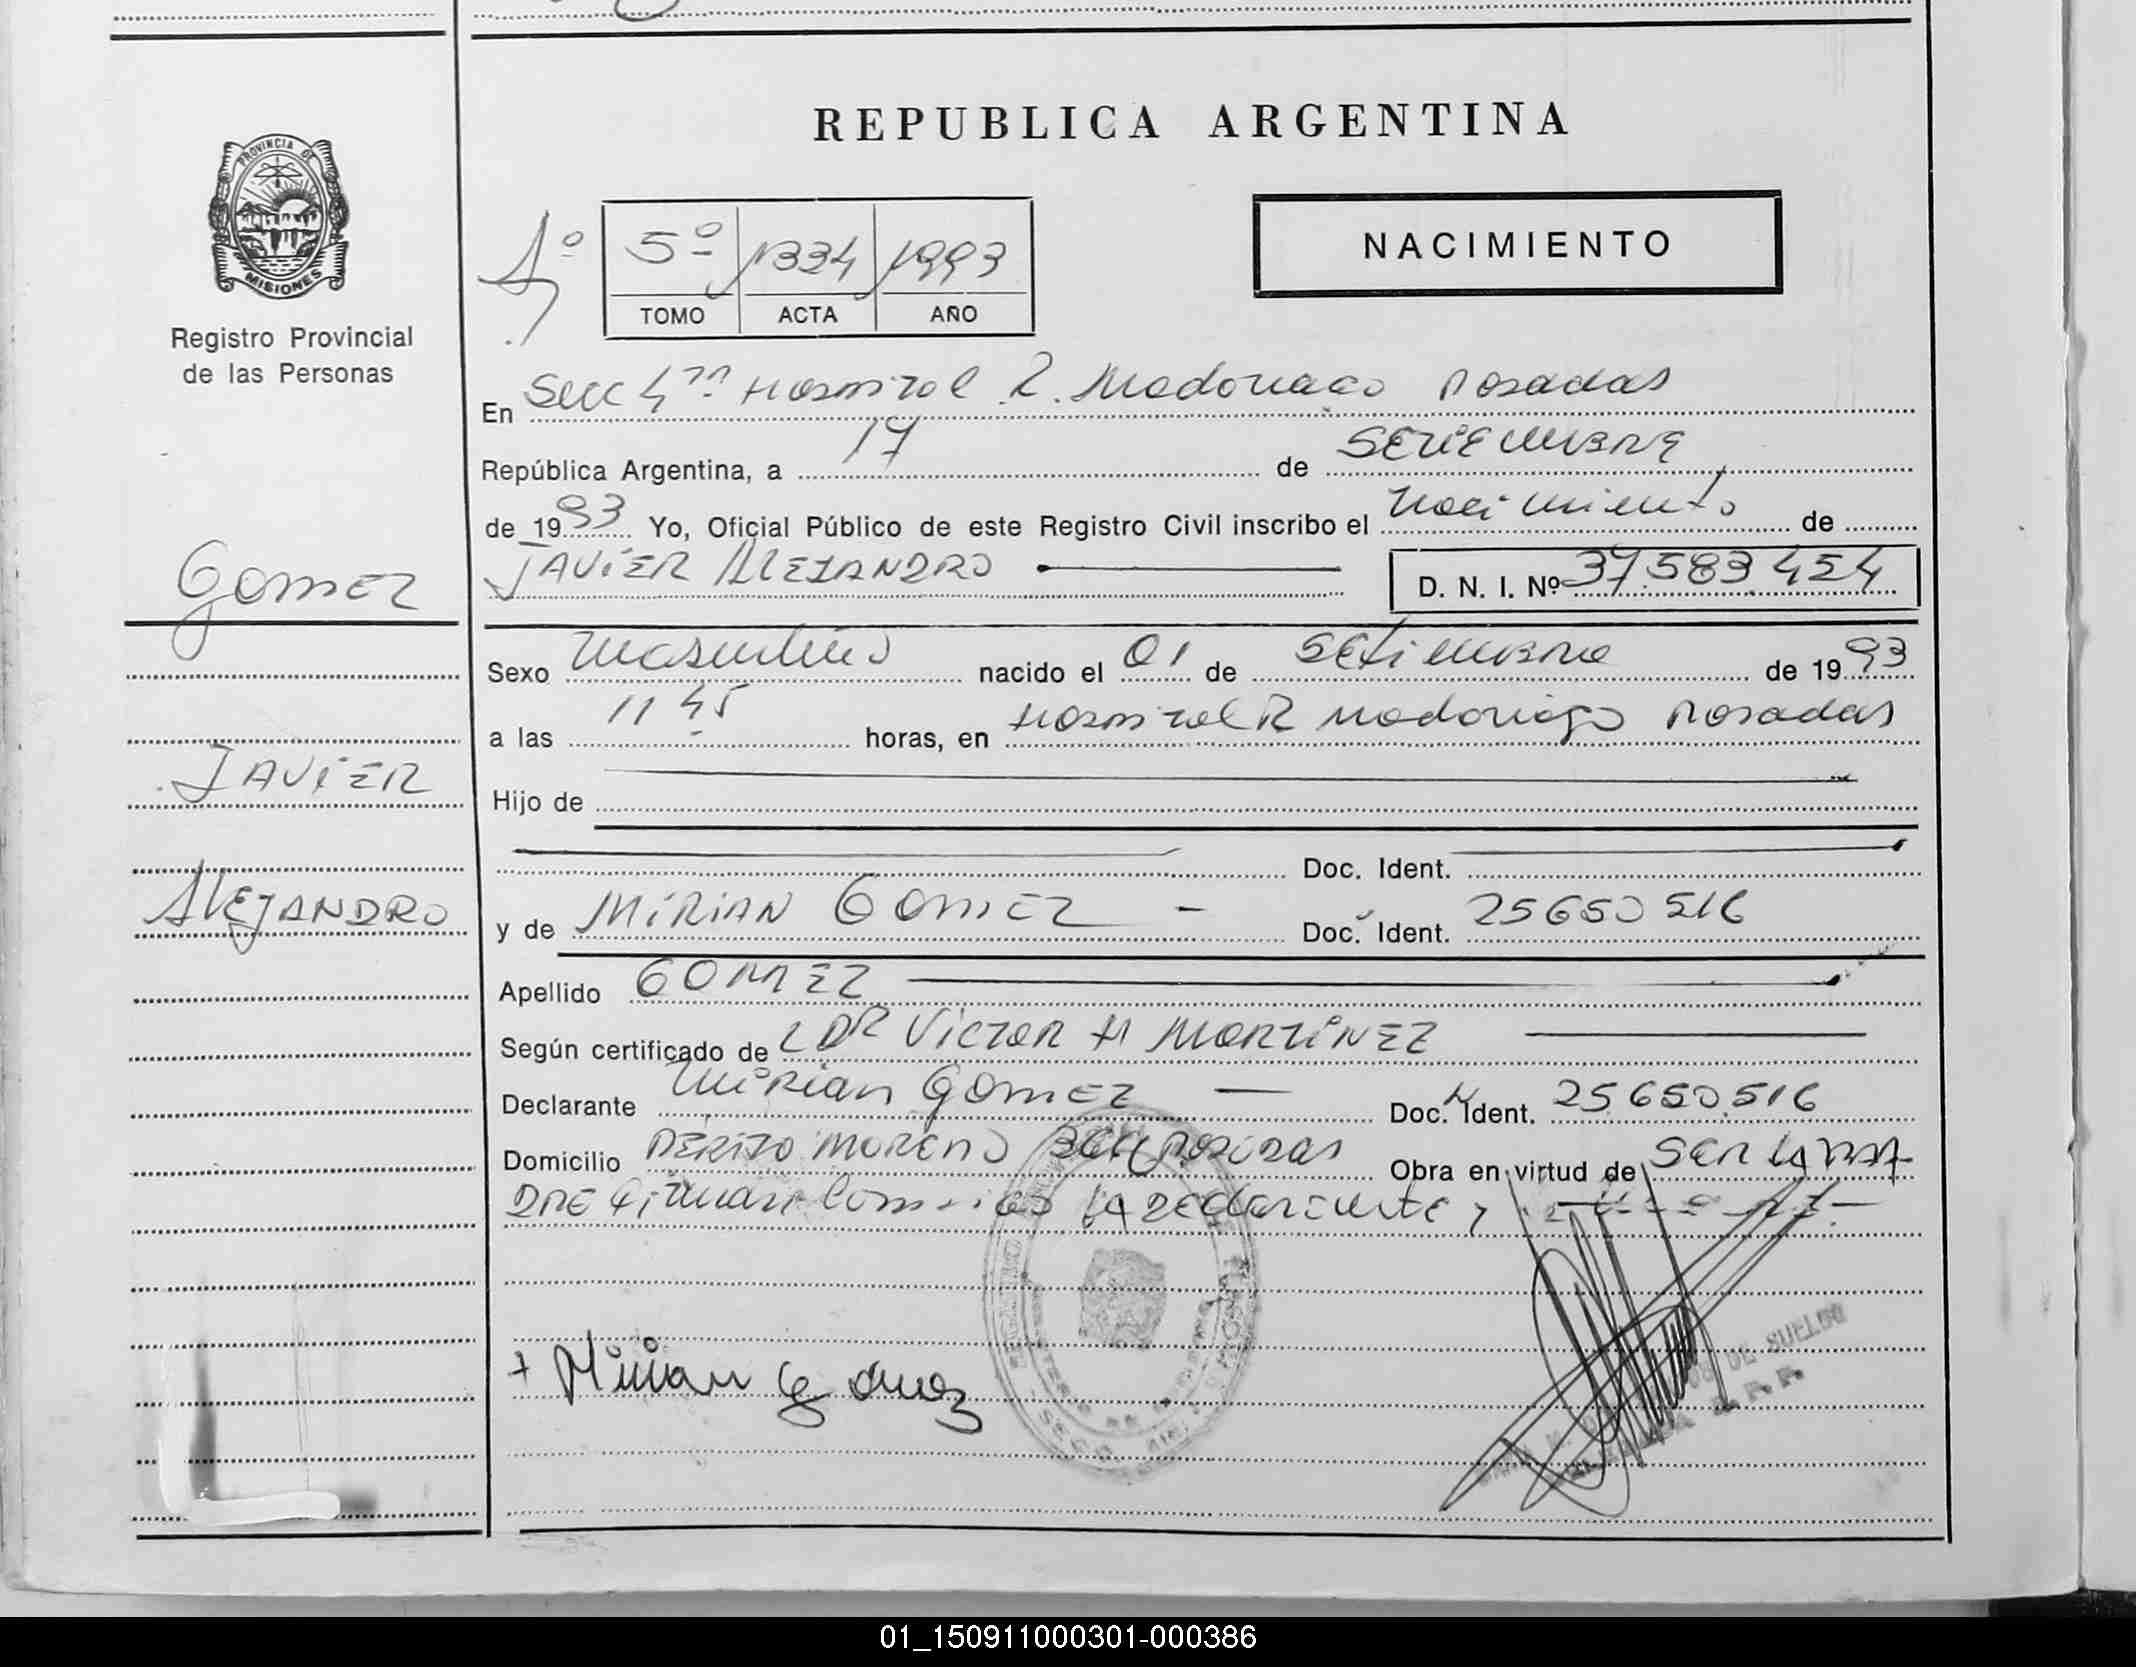 REPUBLICA ARGENTINA
PROVINCIA DE
MISIONES
Registro Provincial
de las Personas
5º 1334 1993
TOMO ACTA AÑO
NACIMIENTO
En Secc 4ta Hospital R. Madariaga Posadas
República Argentina, a 17 de SETIEMBRE
de 1993 Yo, Oficial Público de este Registro Civil inscribo el Nacimiento de
JAVIER ALEJANDRO D. N. I. Nº 37.583.454
GOMEZ
JAVIER
ALEJANDRO
Sexo Masculino nacido el 01 de Setiembre de 1993
a las 11 45 horas, en Hospital R Madariaga Posadas
Hijo de
Doc. Ident.
y de MIRIAN GOMEZ - Doc. Ident. 25650516
Apellido GOMEZ
Según certificado de DR VICTOR H MARTINEZ
Declarante MIRIAN GOMEZ — Doc. Ident. 25.650.516
Domicilio PERITO MORENO POSADAS Obra en virtud de SER LA MA
DRE Firman la declarante y
+ Mirian Gomez
DE SUELDO
01_150911000301-000386